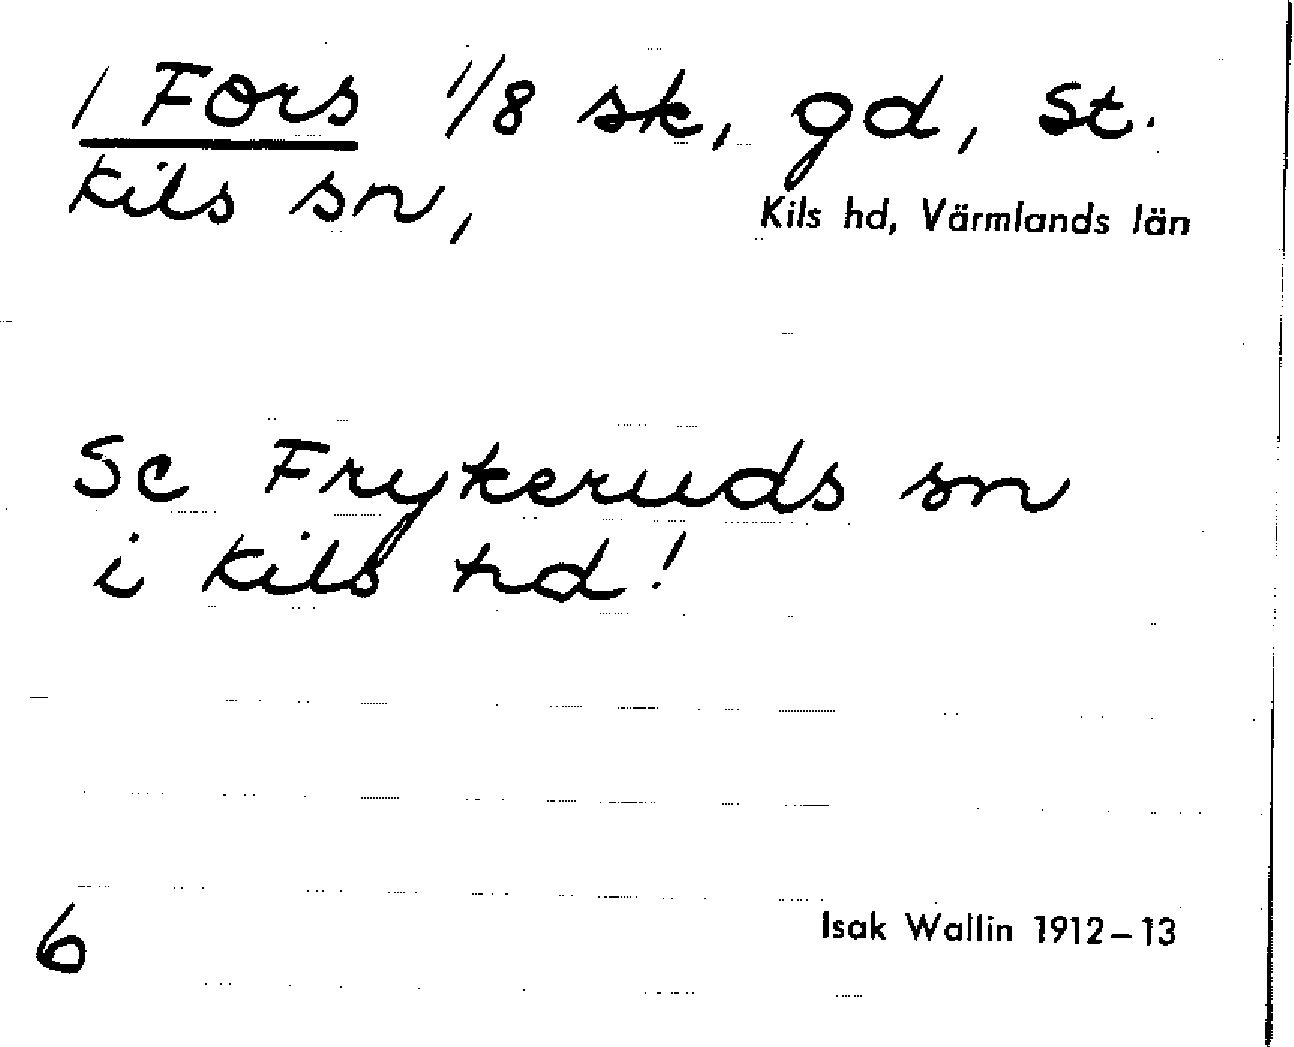 / Fors 1/8 sk, gd, St.
Kils sn,
Kils hd, Värmlands län
Se Frykeruds sn
i Kils hd!
6
Isak Wallin 1912–13